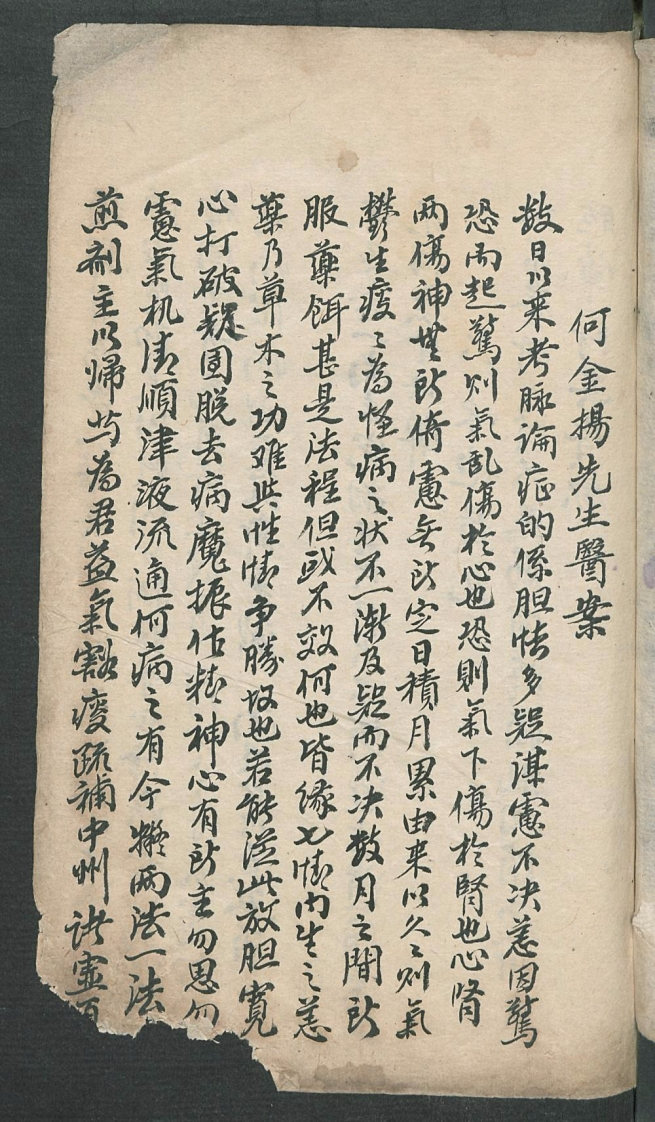 何金揚先生醫案
数日以来考脉論症的係胆怯多疑谋慮不决恙因驚
恐而起驚则氣乱傷於心也恐则氣下傷於腎也心腎
两傷神無所倚慮無所定日積月累由来以久久则氣
鬱生痰痰為怪病之状不一渐及疑而不决数月之間所
服藥餌甚是法程但或不效何也皆缘七情内生之恙
藥乃草木之功难與性情争勝故也若能從此放胆寬
心打破疑團脱去病魔振作精神心有所主勿思勿
慮氣机清順津液流通何病之有今擬两法一法
煎剤主以帰芍為君益氣豁痰疏補中州